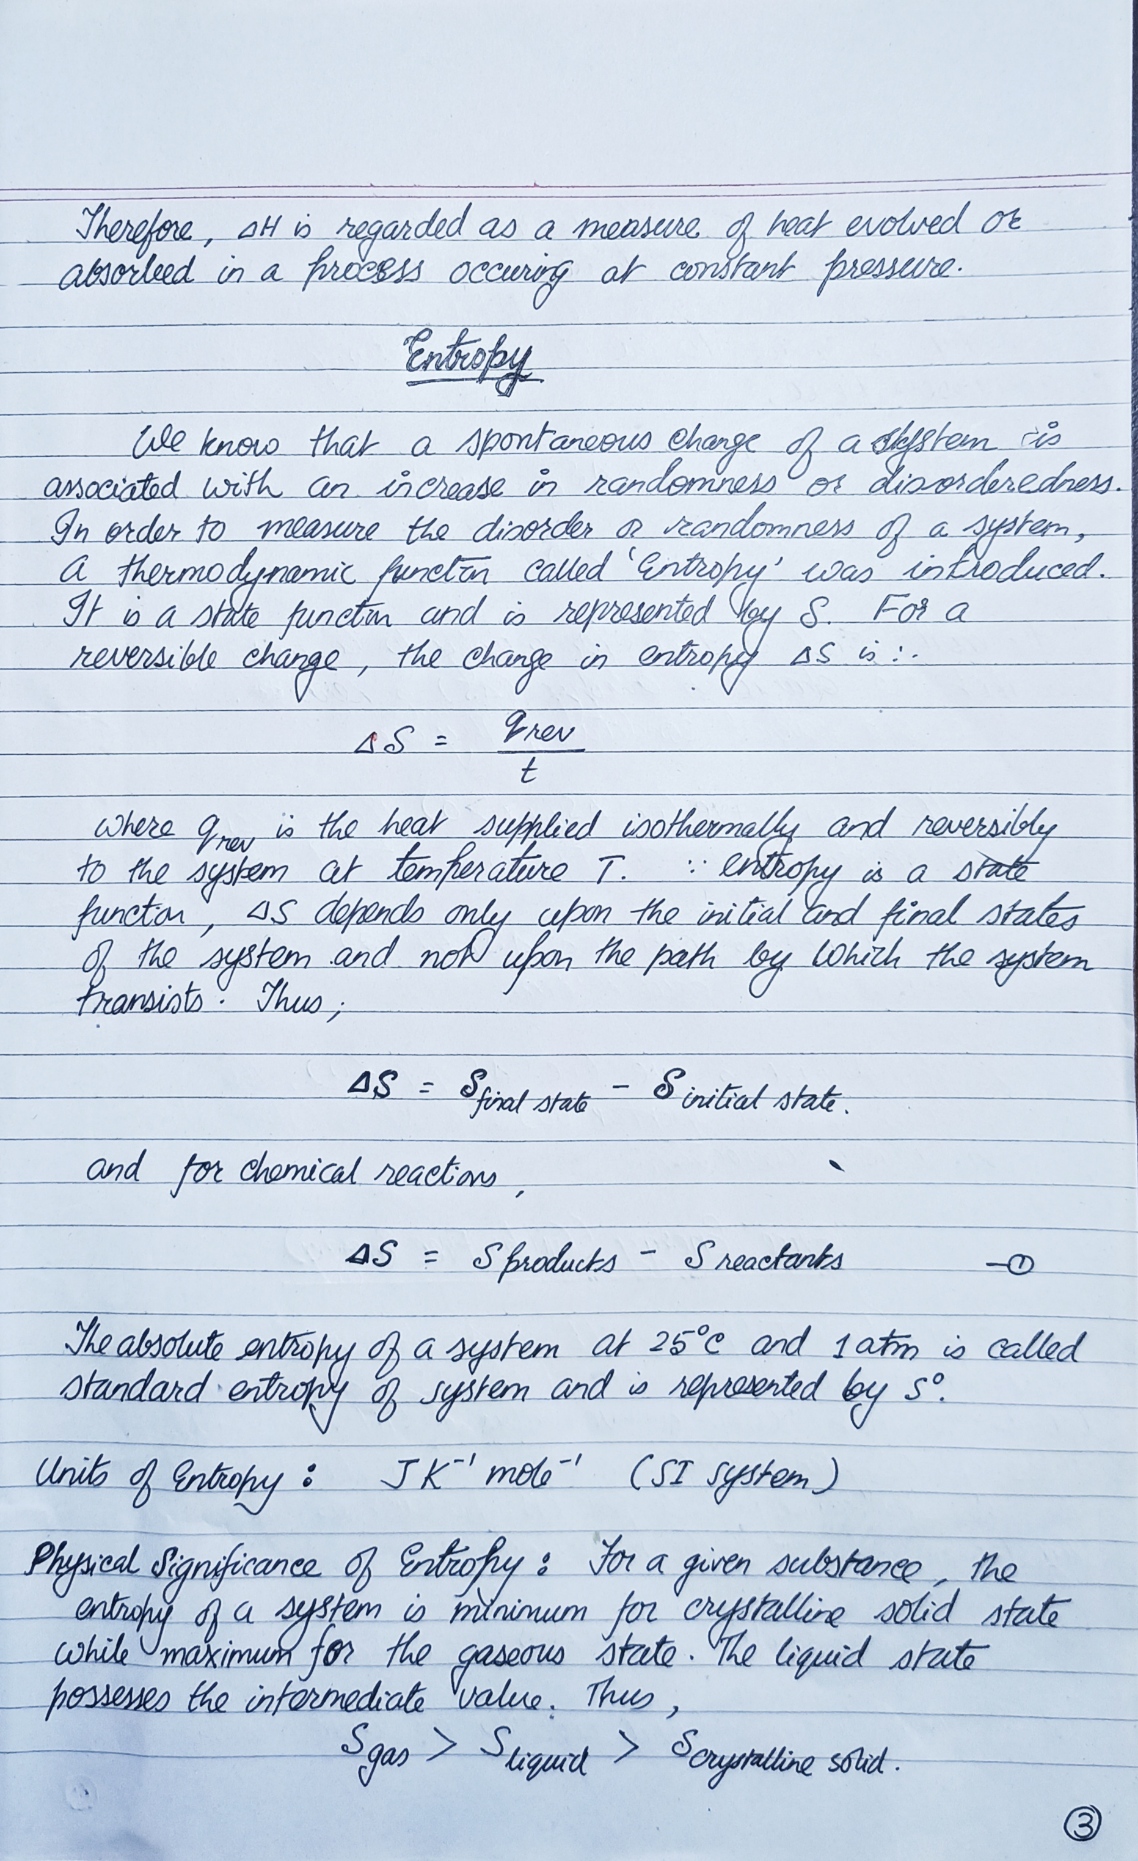 Therefore, ΔH is regarded as a measure of heat evolved or
absorbed in a process occuring at constant pressure.
Entropy
We know that a spontaneous change of a system is
associated with an increase in randomness or disorderedness.
In order to measure the disorder or randomness of a system,
a thermodynamic functn called 'Entropy' was introduced.
It is a state functn and is represented by S. For a
reversible change, the change in entropy ΔS is :-
ΔS = qrev / t
where qrev is the heat supplied isothermally and reversibly
to the system at temperature T. ∵ entropy is a state
functon, ΔS depends only upon the initial and final states
of the system and not upon the path by which the system
transists. Thus;
ΔS = S final state - S initial state.
and for chemical reactions,
ΔS = S products - S reactants —①
The absolute entropy of a system at 25°C and 1 atm is called
standard entropy of system and is represented by S°.
Units of Entropy : J K⁻¹ mole⁻¹ (SI system)
Physical Significance of Entropy : For a given substance, the
entropy of a system is minimum for crystalline solid state
while maximum for the gaseous state. The liquid state
possesses the intermediate value. Thus,
S gas > S liquid > S crystalline solid.
③